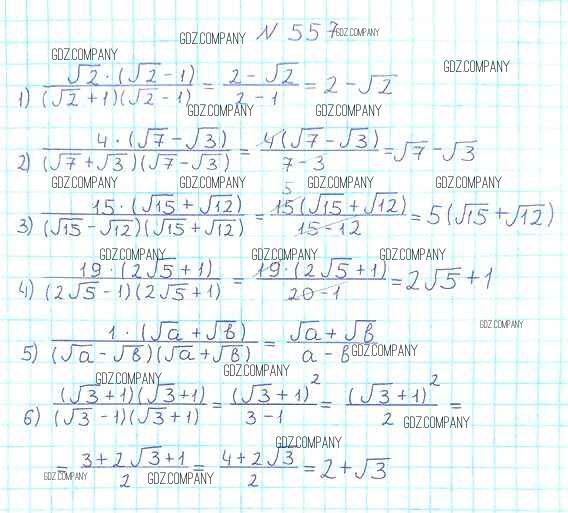 GDZ.COMPANY N 557 GDZ.COMPANY
GDZ.COMPANY GDZ.COMPANY
1) (√2 · (√2 - 1))/((√2 + 1)(√2 - 1)) = (2 - √2)/(2 - 1) = 2 - √2
GDZ.COMPANY GDZ.COMPANY
2) (4 · (√7 - √3))/((√7 + √3)(√7 - √3)) = (4(√7 - √3))/(7 - 3) = √7 - √3
GDZ.COMPANY GDZ.COMPANY GDZ.COMPANY GDZ.COMPANY
3) (15 · (√15 + √12))/((√15 - √12)(√15 + √12)) = (15 5 (√15 + √12))/(15 - 12) = 5(√15 + √12)
GDZ.COMPANY GDZ.COMPANY GDZ.COMPANY
4) (19 · (2√5 + 1))/((2√5 - 1)(2√5 + 1)) = (19 · (2√5 + 1))/(20 - 1) = 2√5 + 1
GDZ.COMPANY
5) (1 · (√a + √b))/((√a - √b)(√a + √b)) = (√a + √b)/(a - b) GDZ.COMPANY
GDZ.COMPANY GDZ.COMPANY
6) ((√3 + 1)(√3 + 1))/((√3 - 1)(√3 + 1)) = (√3 + 1)²/(3 - 1) = (√3 + 1)²/2 =
GDZ.COMPANY
GDZ.COMPANY
= (3 + 2√3 + 1)/2 = (4 + 2√3)/2 = 2 + √3
GDZ.COMPANY GDZ.COMPANY